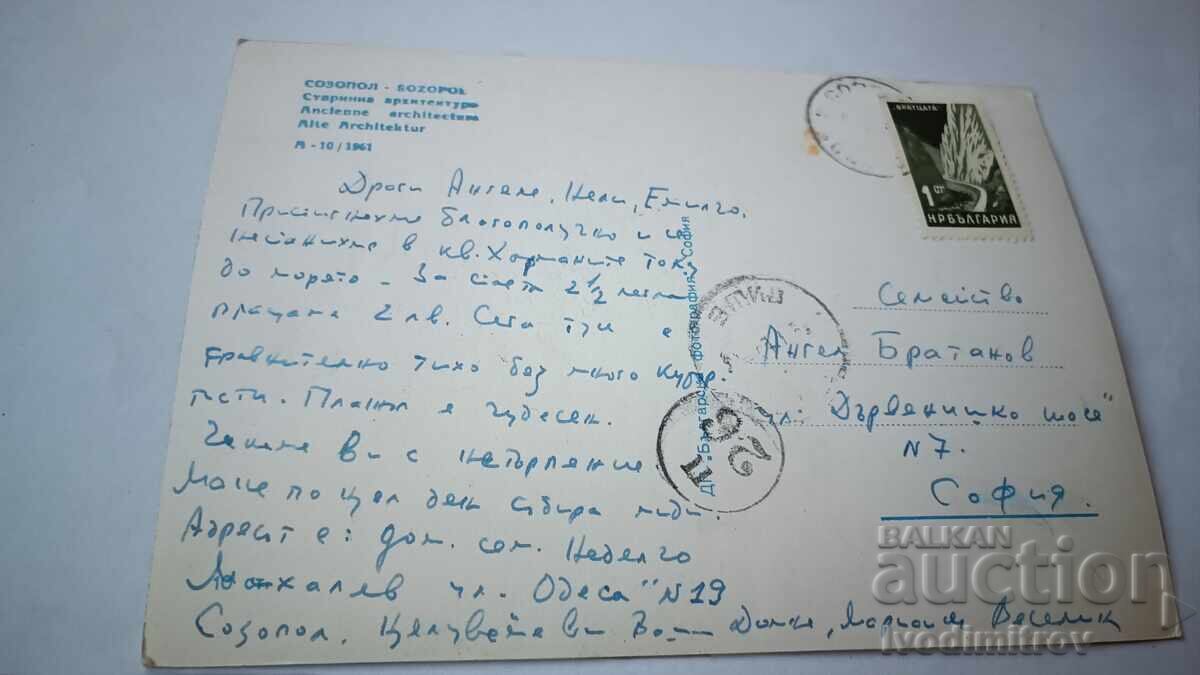 СОЗОПОЛ - SOZOPOL
Старинна архитектура
Ancienne architecture
Alte Architektur
А - 10 / 1961
Драги Ангеле, Нели, Емилчо,
Пристигнахме благополучно и се
настанихме в кв. Харманите току
до морето - За стая 2 1/2 легла
плащаме 2 лв. Сега тук е
сравнително тихо без много курор.
тисти. Плажът е чудесен.
Чакаме ви с нетърпение
по цял ден събира миди.
Адресът е: дом. сем. Неделчо
Михалев ул. Одеса" N19
Созопол. Целуваме ви Дочка,
ДП „Българска фотография", София
"ВРАТЦАТА"
1 СТ
НР БЪЛГАРИЯ
СОФИЯ
26
П
Семейство
Ангел Братанов
ул: Дървенишко шосе"
N 7.
София.
BALKAN
auction
ivodimitrov